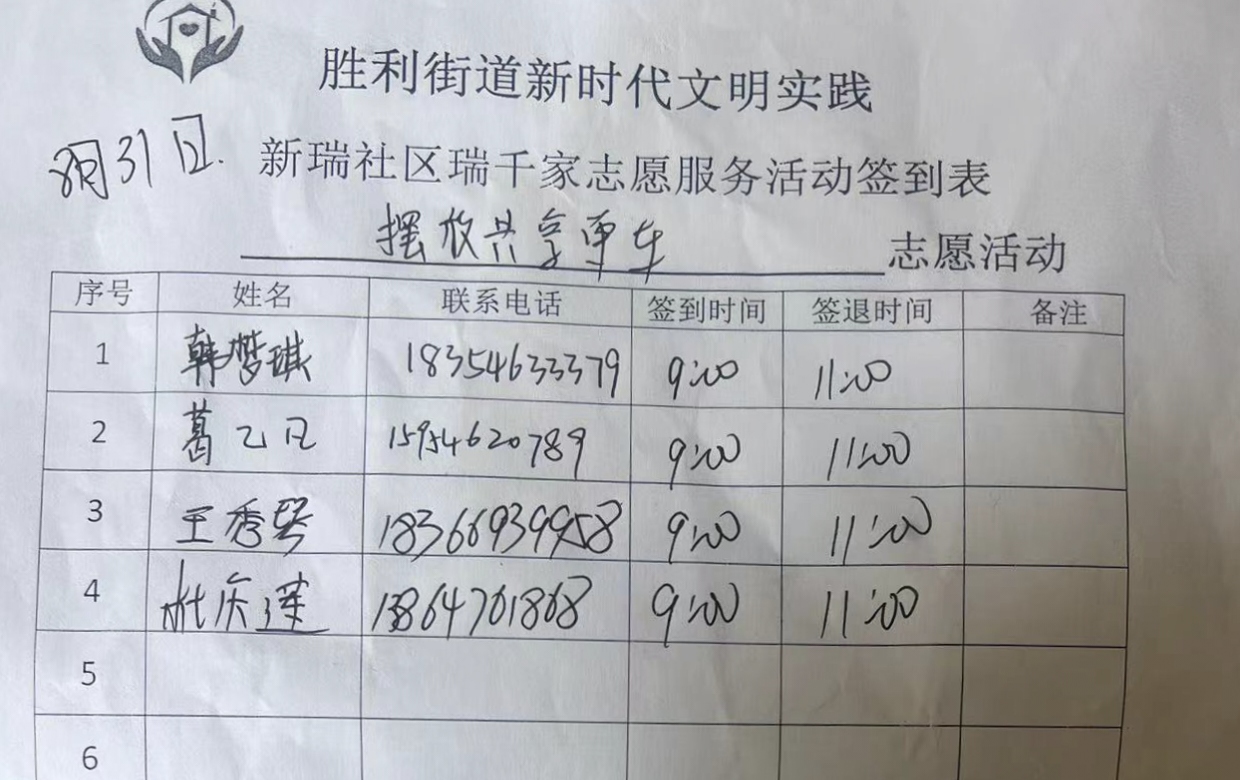 胜利街道新时代文明实践
8月31日.
新瑞社区瑞千家志愿服务活动签到表
摆放共享单车 志愿活动
序号 姓名 联系电话 签到时间 签退时间 备注
1 韩梦琪 18354633379 9:00 11:00
2 葛乙凡 15954620789 9:00 11:00
3 王秀琴 18366939958 9:00 11:00
4 杜庆莲 9:00 11:00
5
6